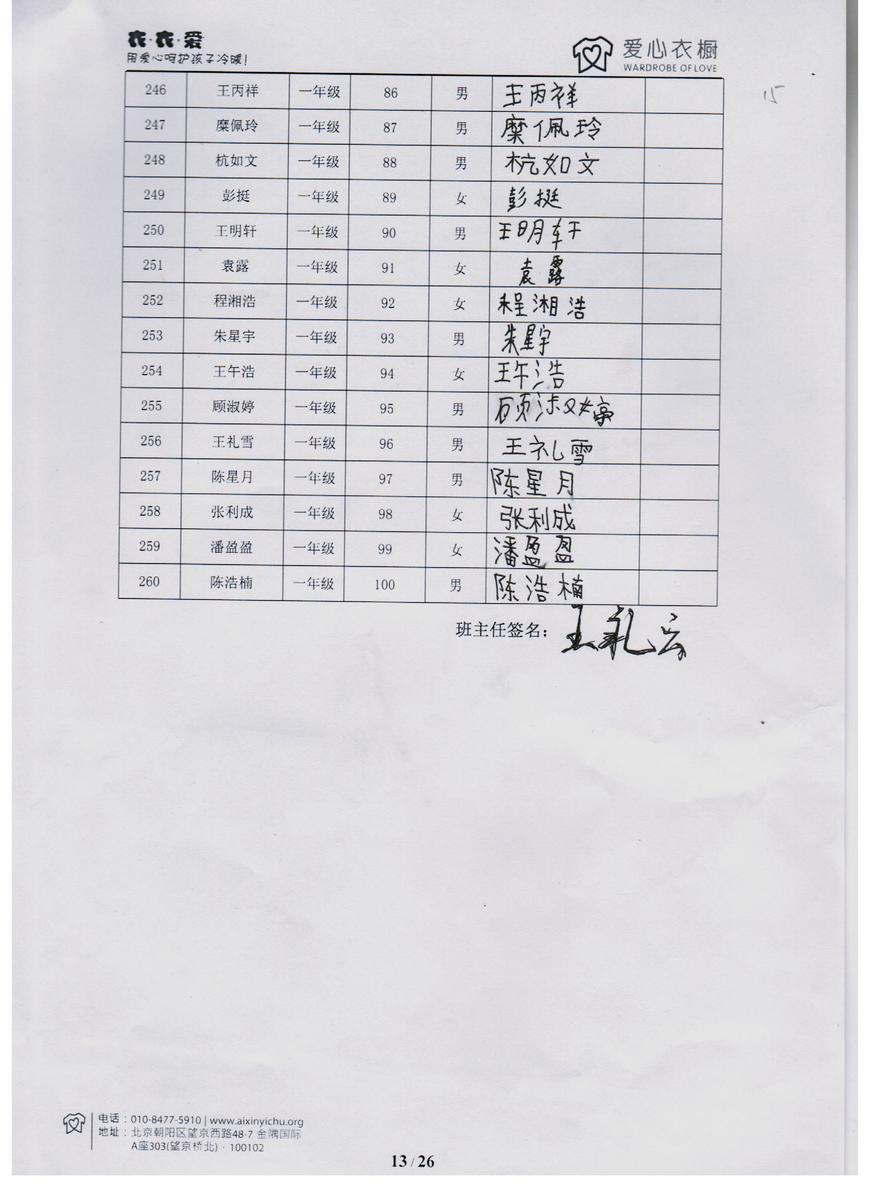 衣·衣·爱
用爱心呵护孩子冷暖！
爱心衣橱
WARDROBE OF LOVE
15
246 王丙祥 一年级 86 男 王丙祥
247 糜佩玲 一年级 87 男 糜佩玲
248 杭如文 一年级 88 男 杭如文
249 彭挺 一年级 89 女 彭挺
250 王明轩 一年级 90 男 王明轩
251 袁露 一年级 91 女 袁露
252 程湘浩 一年级 92 女 程湘浩
253 朱星宇 一年级 93 男 朱星宇
254 王午浩 一年级 94 女 王午浩
255 顾淑婷 一年级 95 男 顾淑婷
256 王礼雪 一年级 96 男 王礼雪
257 陈星月 一年级 97 男 陈星月
258 张利成 一年级 98 女 张利成
259 潘盈盈 一年级 99 女 潘盈盈
260 陈浩楠 一年级 100 男 陈浩楠
班主任签名： 王礼云
电话：010-8477-5910 | www.aixinyichu.org
地址：北京朝阳区望京西路48-7 金隅国际
A座303(望京桥北)·100102
13 / 26